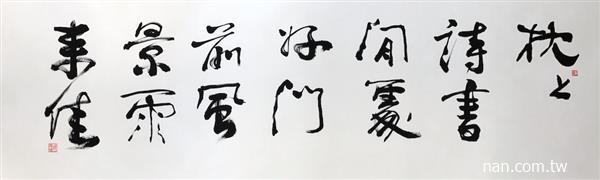 枕上
詩書
閒處
好門
前風
景雨
來佳
nan.com.tw